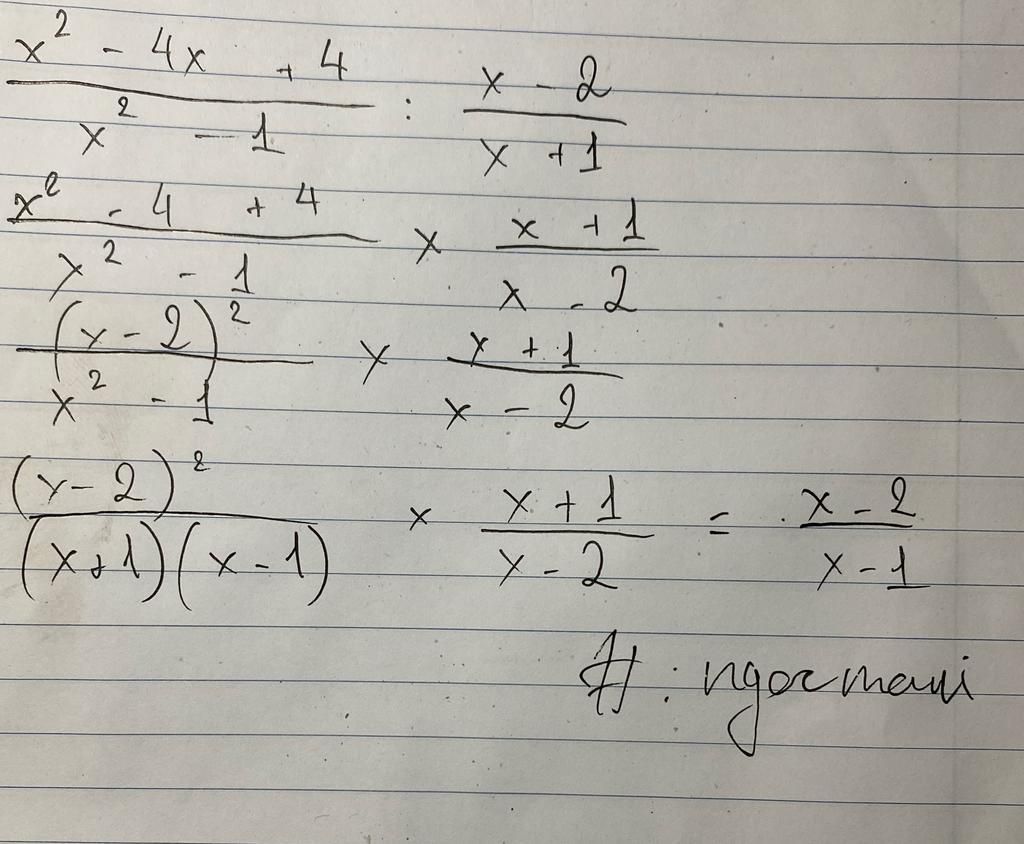 x² - 4x + 4 / x² - 1 : x - 2 / x + 1
x² - 4 + 4 / x² - 1 × x + 1 / x - 2
(x - 2)² / x² - 1 × x + 1 / x - 2
(x - 2)² / (x + 1)(x - 1) × x + 1 / x - 2 = x - 2 / x - 1